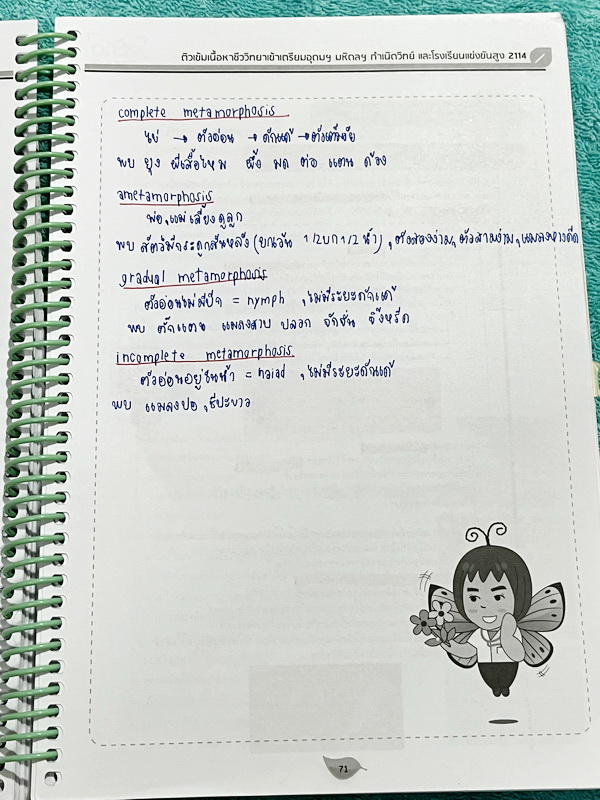 ติวเข้มเนื้อหาชีววิทยาเข้าเตรียมอุดมฯ มหิดลฯ กำเนิดวิทย์ และโรงเรียนแข่งขันสูง 2114
complete metamorphosis
ไข่ → ตัวอ่อน → ดักแด้ → ตัวเต็มวัย
พบ ยุง ผีเสื้อไหม ผึ้ง มด ต่อ แตน ด้วง
ametamorphosis
พ่อ,แม่เลี้ยงดูลูก
พบ สัตว์มีกระดูกสันหลัง (ยกเว้น 1/2บก1/2น้ำ) ,ตัวสองง่าม,ตัวสามง่าม,แมลงหางดีด
gradual metamorphosis
ตัวอ่อนไม่มีปีก = nymph ,ไม่มีระยะดักแด้
พบ ตั๊กแตน แมลงสาบ ปลวก จักจั่น จิ้งหรีด
incomplete metamorphosis
ตัวอ่อนอยู่ในน้ำ = naiad ,ไม่มีระยะดักแด้
พบ แมลงปอ ,ชีปะขาว
71